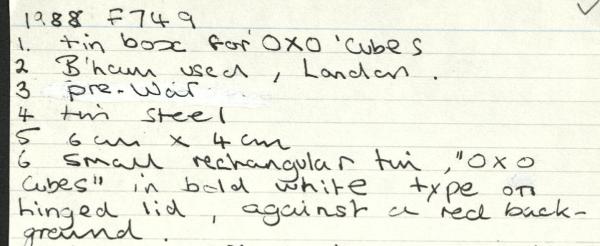 1988 F749
1. tin box for 'OXO' cubes
2 B'ham used, London.
3 pre-war
4 tin steel
5 6cm x 4cm
6 small rechangular tin, "OXO
cubes" in bold white type on
hinged lid, against a red back-
ground.